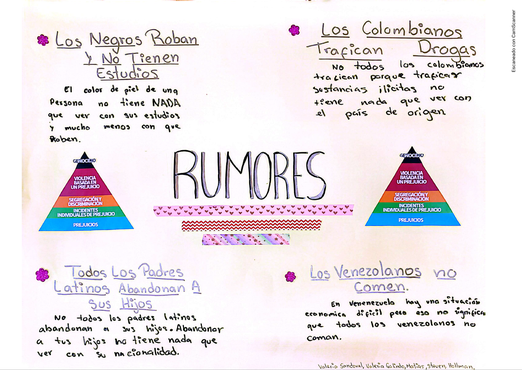 Los Negros Roban
Y No Tienen
Estudios
El color de piel de una
Persona no tiene NADA
que ver con sus estudios
y mucho menos con que
Roben.
Los Colombianos
Trafican Drogas
No todos los colombianos
trafican porque traficar
sustancias ilicitas no
tiene nada que ver con
el país de origen
RUMORES
GENOCIDIO
VIOLENCIA
BASADA EN
UN PREJUICIO
SEGREGACIÓN y
DISCRIMINACIÓN
INCIDENTES
INDIVIDUALES DE PREJUICIO
PREJUICIOS
GENOCIDIO
VIOLENCIA
BASADA EN
UN PREJUICIO
SEGREGACIÓN y
DISCRIMINACIÓN
INCIDENTES
INDIVIDUALES DE PREJUICIO
PREJUICIOS
Todos Los Padres
Latinos Abandonan A
Sus Hijos
No todos los padres latinos
abandonan a sus hijos. Abandonar
a tus hijos no tiene nada que
ver con su nacionalidad.
Los Venezolanos no
Comen.
En venenzuela hay una situación
economica dificil pero eso no significa
que todos los venezolanos no
coman.
Valeria Sandoval, Valeria
Escaneado con CamScanner